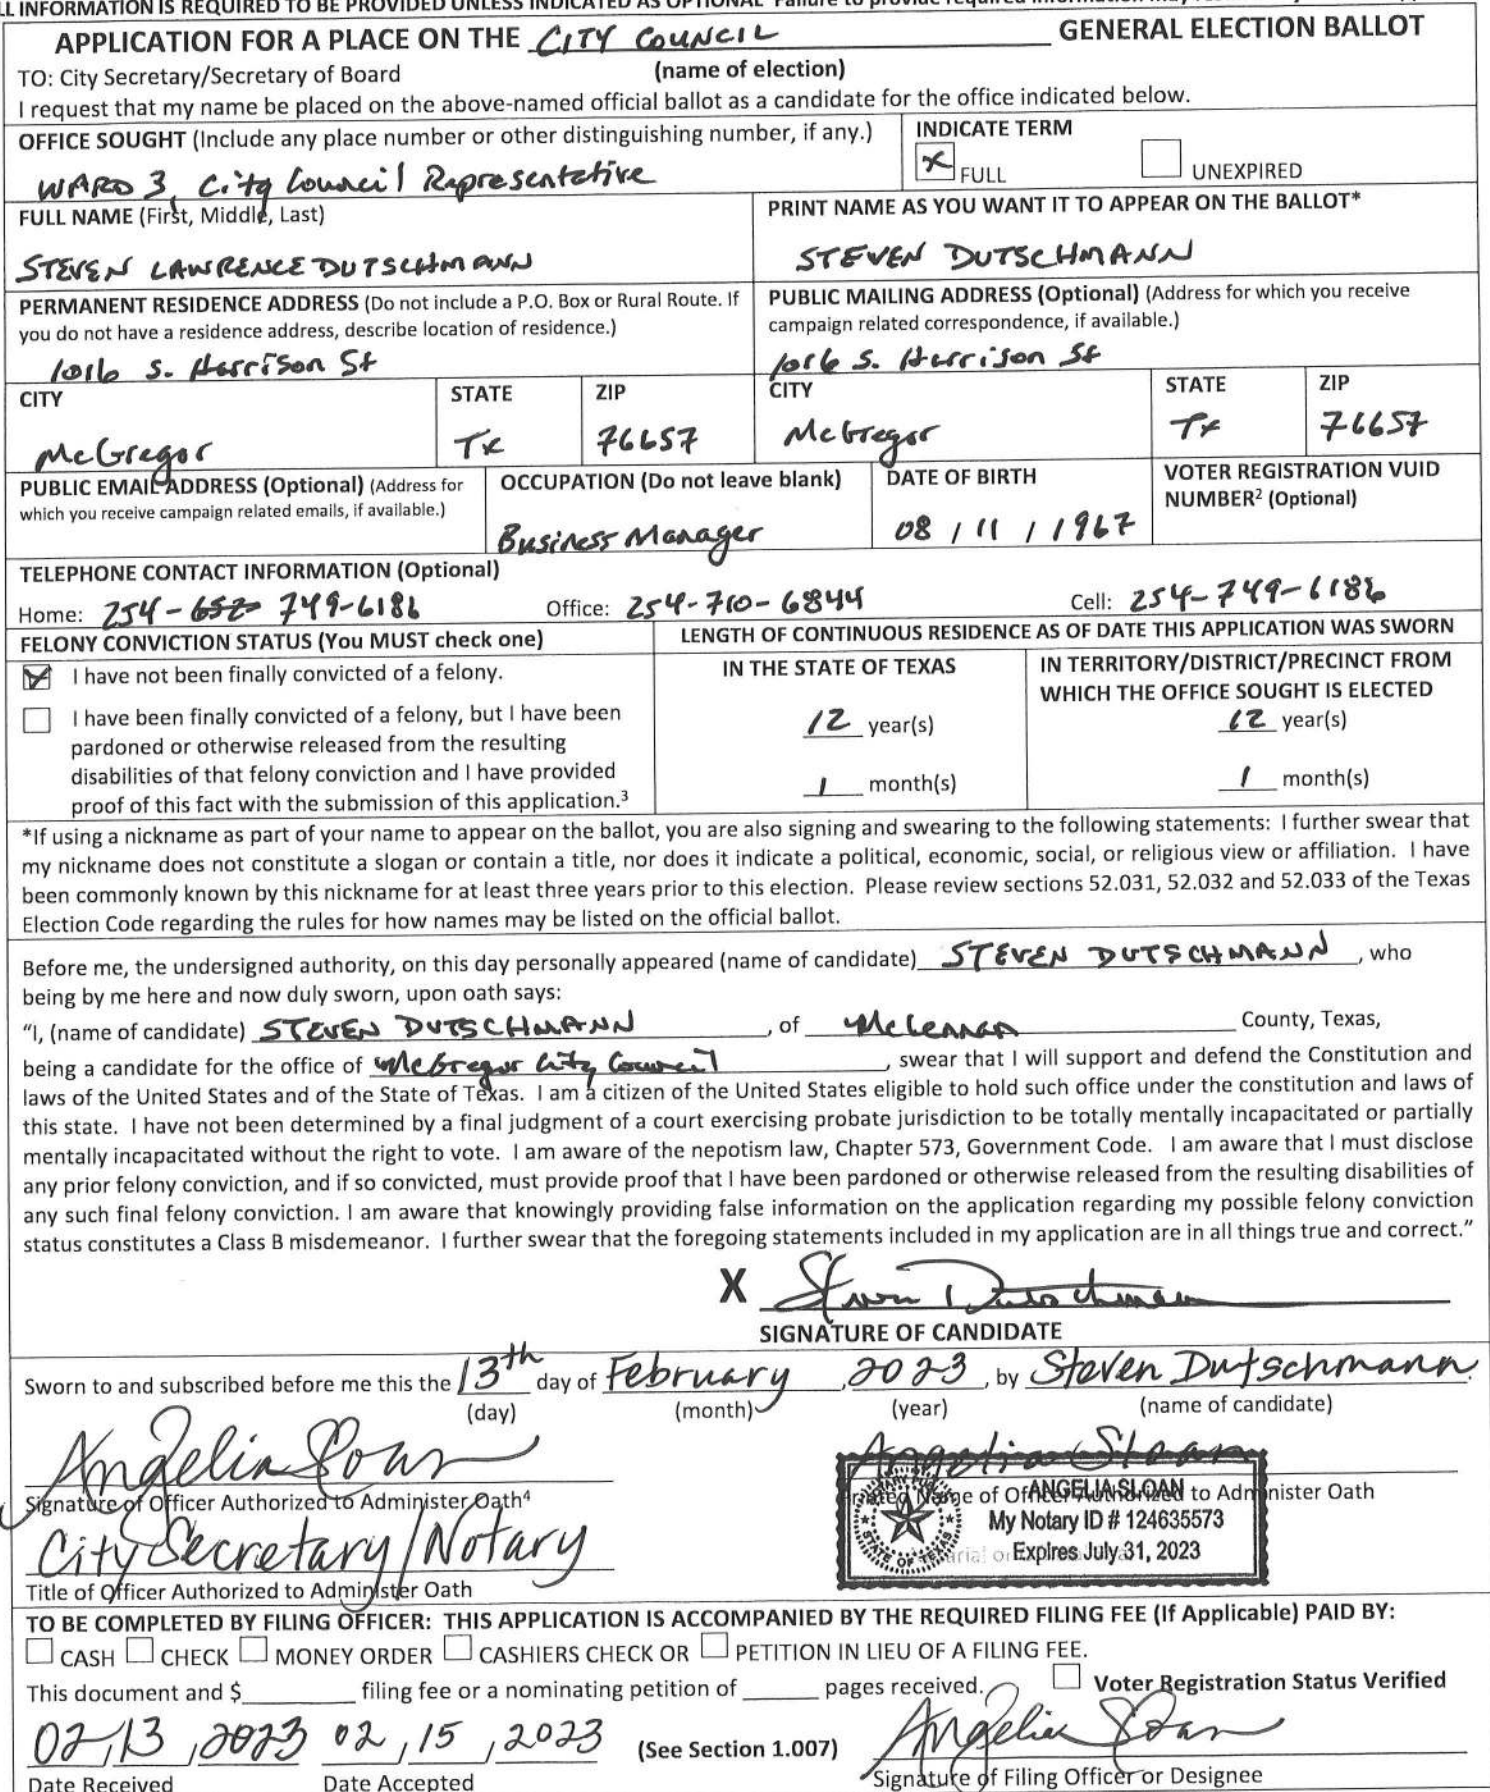 LL INFORMATION IS REQUIRED TO BE PROVIDED UNLESS INDICATED AS OPTIONAL
APPLICATION FOR A PLACE ON THE CITY COUNCIL GENERAL ELECTION BALLOT
TO: City Secretary/Secretary of Board (name of election)
I request that my name be placed on the above-named official ballot as a candidate for the office indicated below.
OFFICE SOUGHT (Include any place number or other distinguishing number, if any.)
WARD 3, City Council Representative
INDICATE TERM
X FULL UNEXPIRED
FULL NAME (First, Middle, Last)
STEVEN LAWRENCE DUTSCHMANN
PRINT NAME AS YOU WANT IT TO APPEAR ON THE BALLOT*
STEVEN DUTSCHMANN
PERMANENT RESIDENCE ADDRESS (Do not include a P.O. Box or Rural Route. If
you do not have a residence address, describe location of residence.)
1016 S. Harrison St
PUBLIC MAILING ADDRESS (Optional) (Address for which you receive
campaign related correspondence, if available.)
1016 S. Harrison St
CITY STATE ZIP CITY STATE ZIP
McGregor Tx 76657 McGregor Tx 76657
PUBLIC EMAIL ADDRESS (Optional) (Address for
which you receive campaign related emails, if available.)
OCCUPATION (Do not leave blank)
Business Manager
DATE OF BIRTH
08 / 11 / 1967
VOTER REGISTRATION VUID
NUMBER² (Optional)
TELEPHONE CONTACT INFORMATION (Optional)
Home: 254-652 749-6186 Office: 254-710-6844 Cell: 254-749-6186
FELONY CONVICTION STATUS (You MUST check one)
I have not been finally convicted of a felony.
I have been finally convicted of a felony, but I have been
pardoned or otherwise released from the resulting
disabilities of that felony conviction and I have provided
proof of this fact with the submission of this application.³
LENGTH OF CONTINUOUS RESIDENCE AS OF DATE THIS APPLICATION WAS SWORN
IN THE STATE OF TEXAS
12 year(s)
1 month(s)
IN TERRITORY/DISTRICT/PRECINCT FROM
WHICH THE OFFICE SOUGHT IS ELECTED
12 year(s)
1 month(s)
*If using a nickname as part of your name to appear on the ballot, you are also signing and swearing to the following statements: I further swear that
my nickname does not constitute a slogan or contain a title, nor does it indicate a political, economic, social, or religious view or affiliation. I have
been commonly known by this nickname for at least three years prior to this election. Please review sections 52.031, 52.032 and 52.033 of the Texas
Election Code regarding the rules for how names may be listed on the official ballot.
Before me, the undersigned authority, on this day personally appeared (name of candidate) STEVEN DUTSCHMANN, who
being by me here and now duly sworn, upon oath says:
"I, (name of candidate) STEVEN DUTSCHMANN, of McLennan County, Texas,
being a candidate for the office of McGregor City Council, swear that I will support and defend the Constitution and
laws of the United States and of the State of Texas. I am a citizen of the United States eligible to hold such office under the constitution and laws of
this state. I have not been determined by a final judgment of a court exercising probate jurisdiction to be totally mentally incapacitated or partially
mentally incapacitated without the right to vote. I am aware of the nepotism law, Chapter 573, Government Code. I am aware that I must disclose
any prior felony conviction, and if so convicted, must provide proof that I have been pardoned or otherwise released from the resulting disabilities of
any such final felony conviction. I am aware that knowingly providing false information on the application regarding my possible felony conviction
status constitutes a Class B misdemeanor. I further swear that the foregoing statements included in my application are in all things true and correct."
X Steven Dutschmann
SIGNATURE OF CANDIDATE
Sworn to and subscribed before me this the 13th day of February, 2023, by Steven Dutschmann.
(day) (month) (year) (name of candidate)
Angelia Sloan Angelia Sloan
Signature of Officer Authorized to Administer Oath⁴
Printed Name of Officer Authorized to Administer Oath
ANGELIA SLOAN
My Notary ID # 124635573
Expires July 31, 2023
City Secretary/Notary
Title of Officer Authorized to Administer Oath
TO BE COMPLETED BY FILING OFFICER: THIS APPLICATION IS ACCOMPANIED BY THE REQUIRED FILING FEE (If Applicable) PAID BY:
CASH CHECK MONEY ORDER CASHIERS CHECK OR PETITION IN LIEU OF A FILING FEE.
This document and $ filing fee or a nominating petition of pages received. Voter Registration Status Verified
02, 13, 2023 02, 15, 2023 (See Section 1.007) Angelia Sloan
Date Received Date Accepted Signature of Filing Officer or Designee